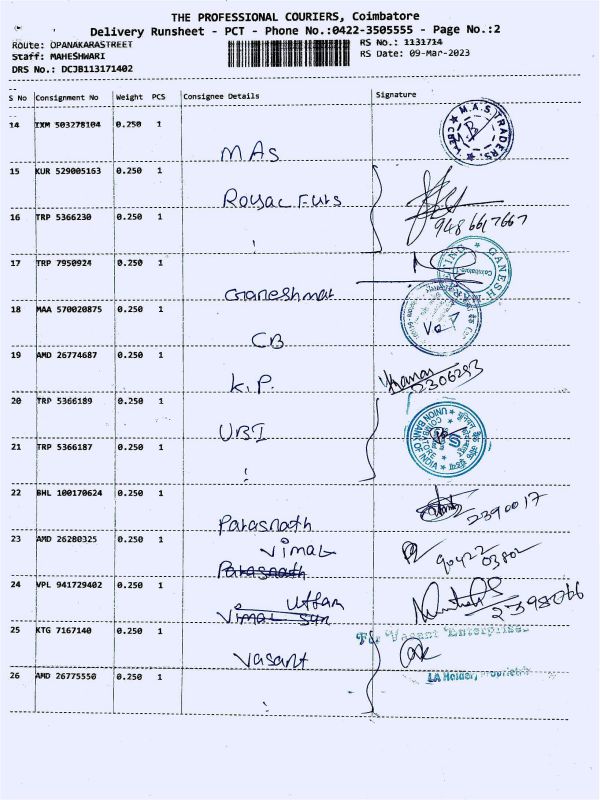 THE PROFESSIONAL COURIERS, Coimbatore
Delivery Runsheet - PCT - Phone No.:0422-3505555 - Page No.:2
Route: OPANAKARASTREET
Staff: MAHESHWARI
DRS No.: DCJB113171402
RS No.: 1131714
RS Date: 09-Mar-2023
S No Consignment No Weight PCS Consignee Details Signature
14 IXM 503278104 0.250 1
MAS
M.A.S TRADERS.
15 KUR 529005163 0.250 1
Royal Furs
16 TRP 5366230 0.250 1
948 6617667
17 TRP 7950924 0.250 1
Ganeshmal
GANESH
18 MAA 570020875 0.250 1
CB
19 AMD 26774687 0.250 1
K.P.
2306293
20 TRP 5366189 0.250 1
UBI
UNION BANK OF INDIA
COIMBATORE
21 TRP 5366187 0.250 1
22 BHL 100170624 0.250 1
Parasnath
2390017
23 AMD 26280325 0.250 1
Vimal
Parasnath
90422
03802
24 VPL 941729402 0.250 1
Uttam
Vimal Sun
2398066
25 KTG 7167140 0.250 1
Vasant
For Vasant Enterprise
26 AMD 26775550 0.250 1